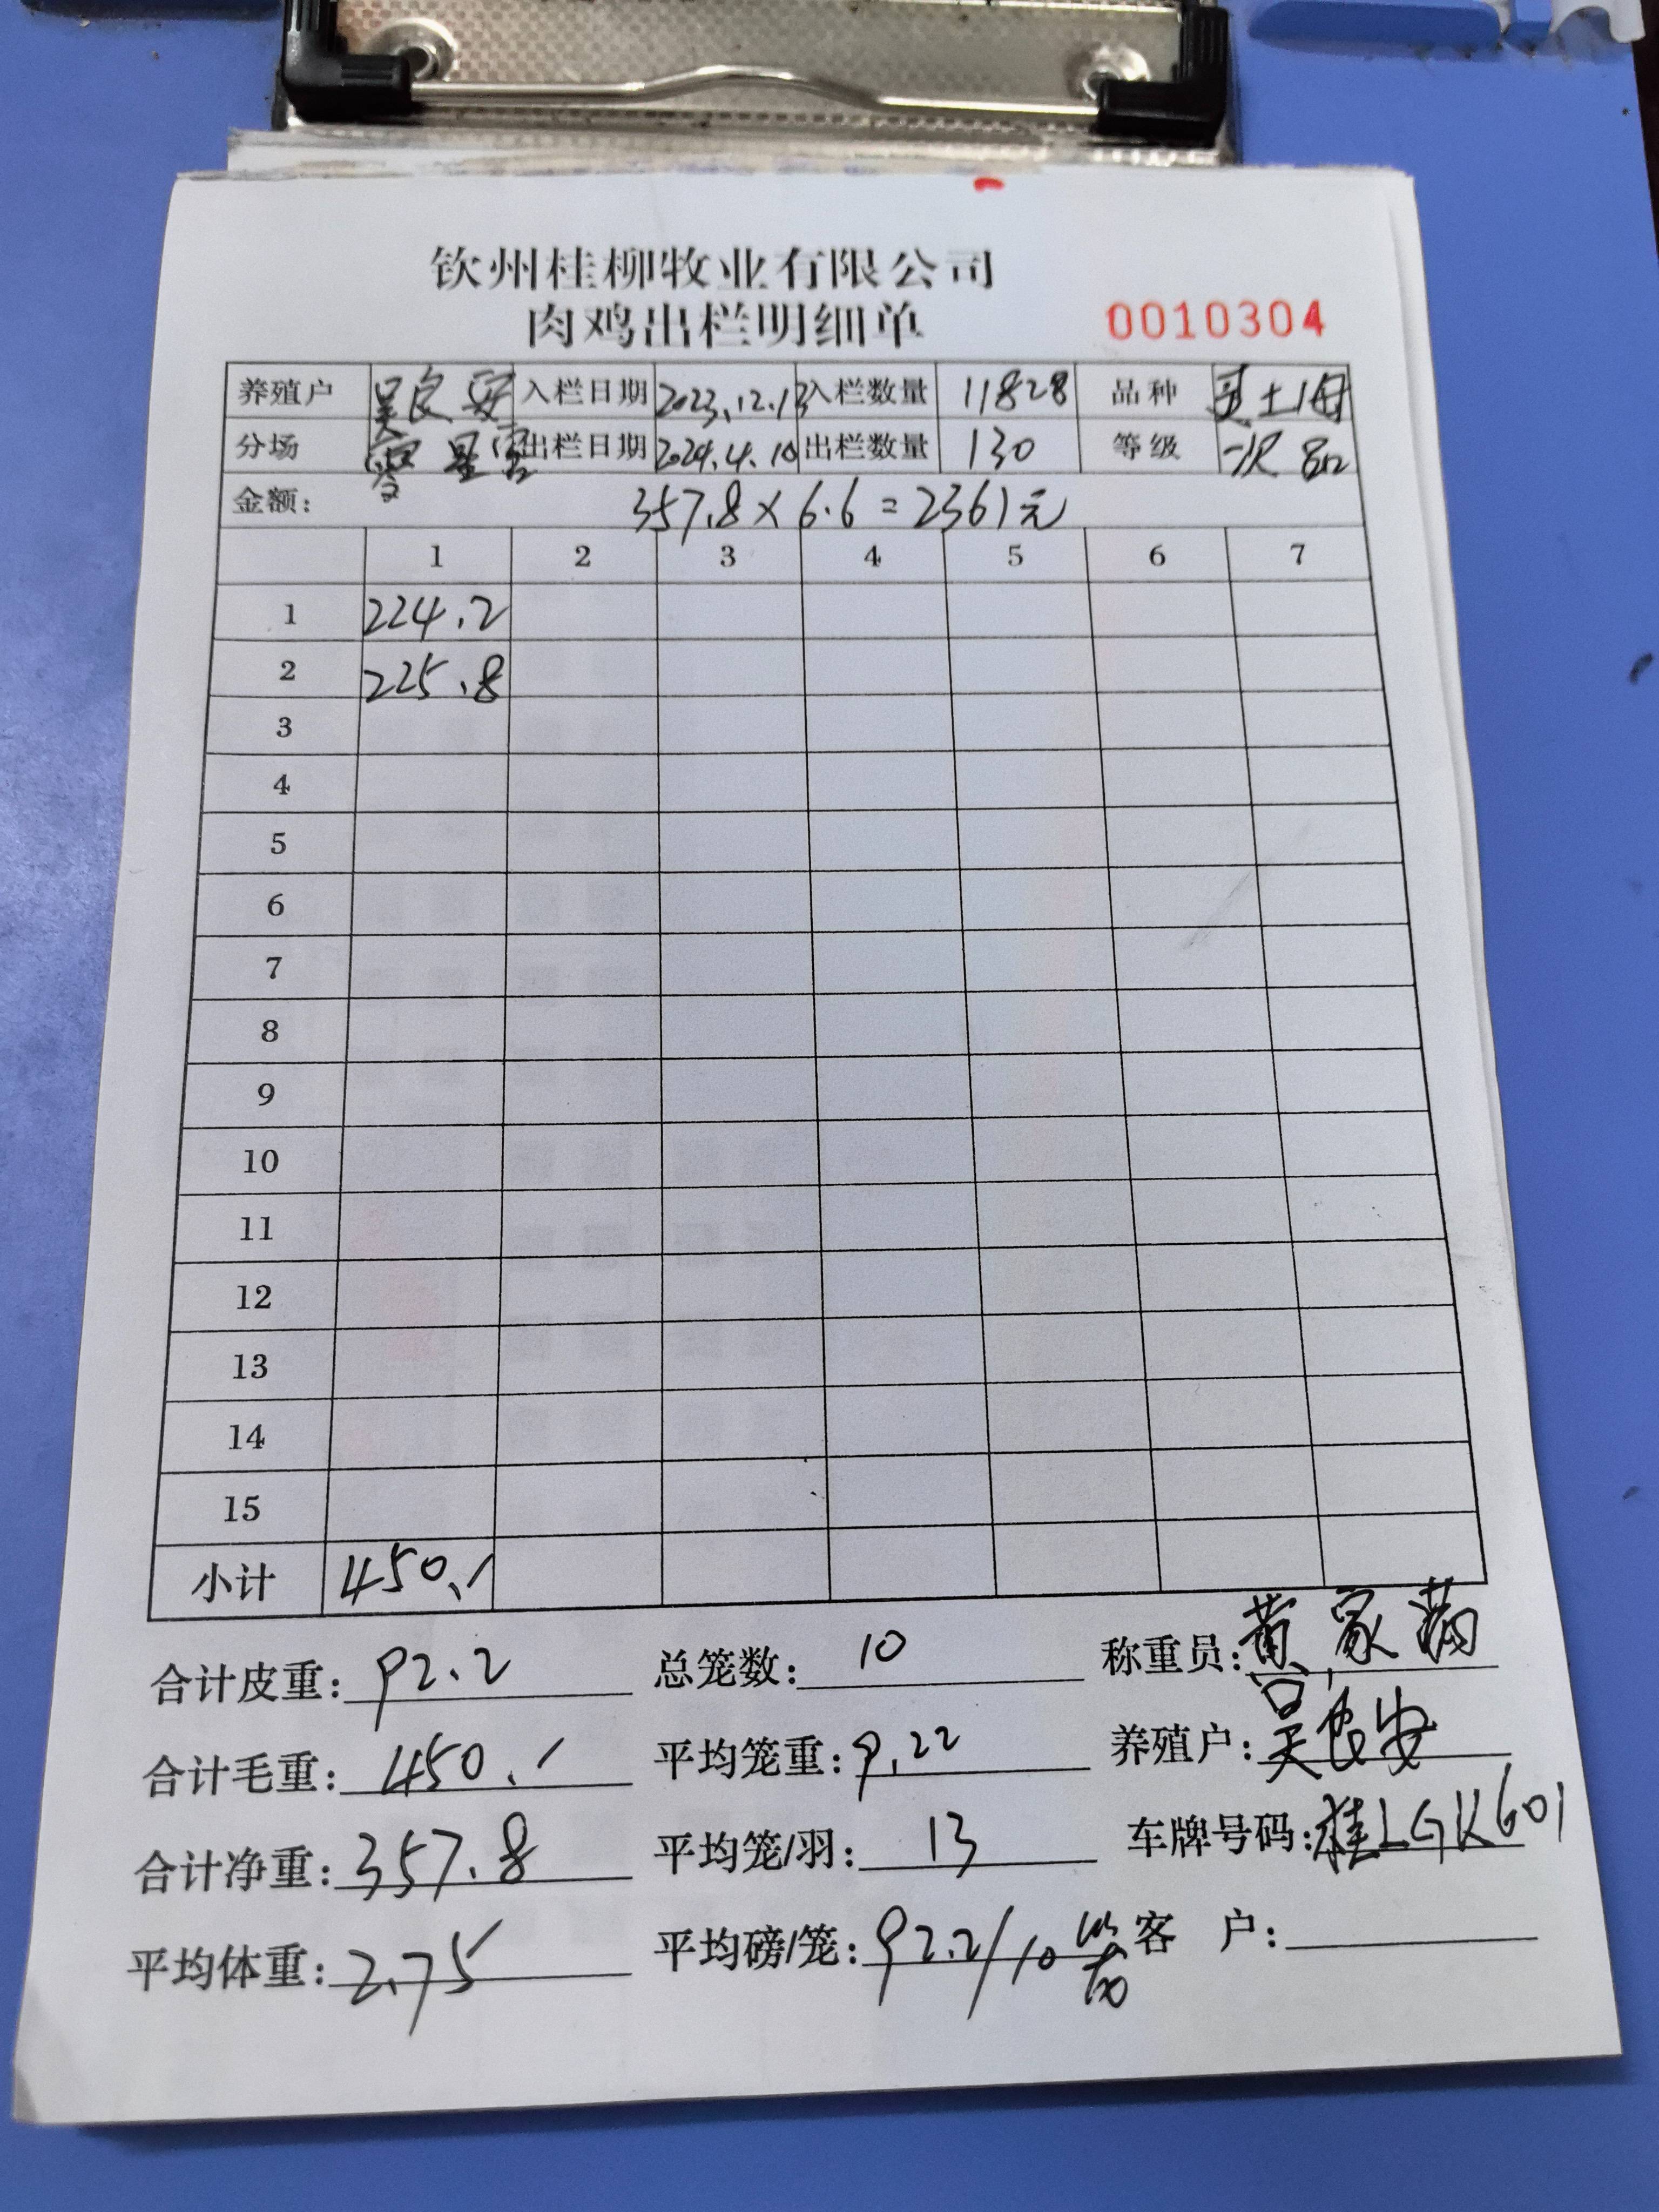 钦州桂柳牧业有限公司
肉鸡出栏明细单 0010304
养殖户 吴良安 入栏日期 2023.12.13 入栏数量 11828 品种 土1母
分场 出栏日期 2024.4.10 出栏数量 130 等级 次品
金额: 357.8×6.6=2361元
1 2 3 4 5 6 7
1 224.2
2 225.8
3
4
5
6
7
8
9
10
11
12
13
14
15
小计 450.1
合计皮重: 92.2 总笼数: 10 称重员: 黄家满
合计毛重: 450.1 平均笼重: 9.22 养殖户: 吴良安
合计净重: 357.8 平均笼/羽: 13 车牌号码: 桂LGK601
平均体重: 2.75 平均磅/笼: 92.2/10 客户: